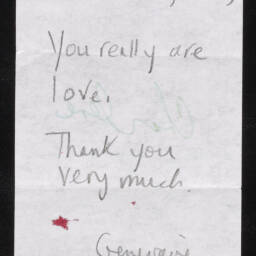 You really are
love.
Thank you
very much.